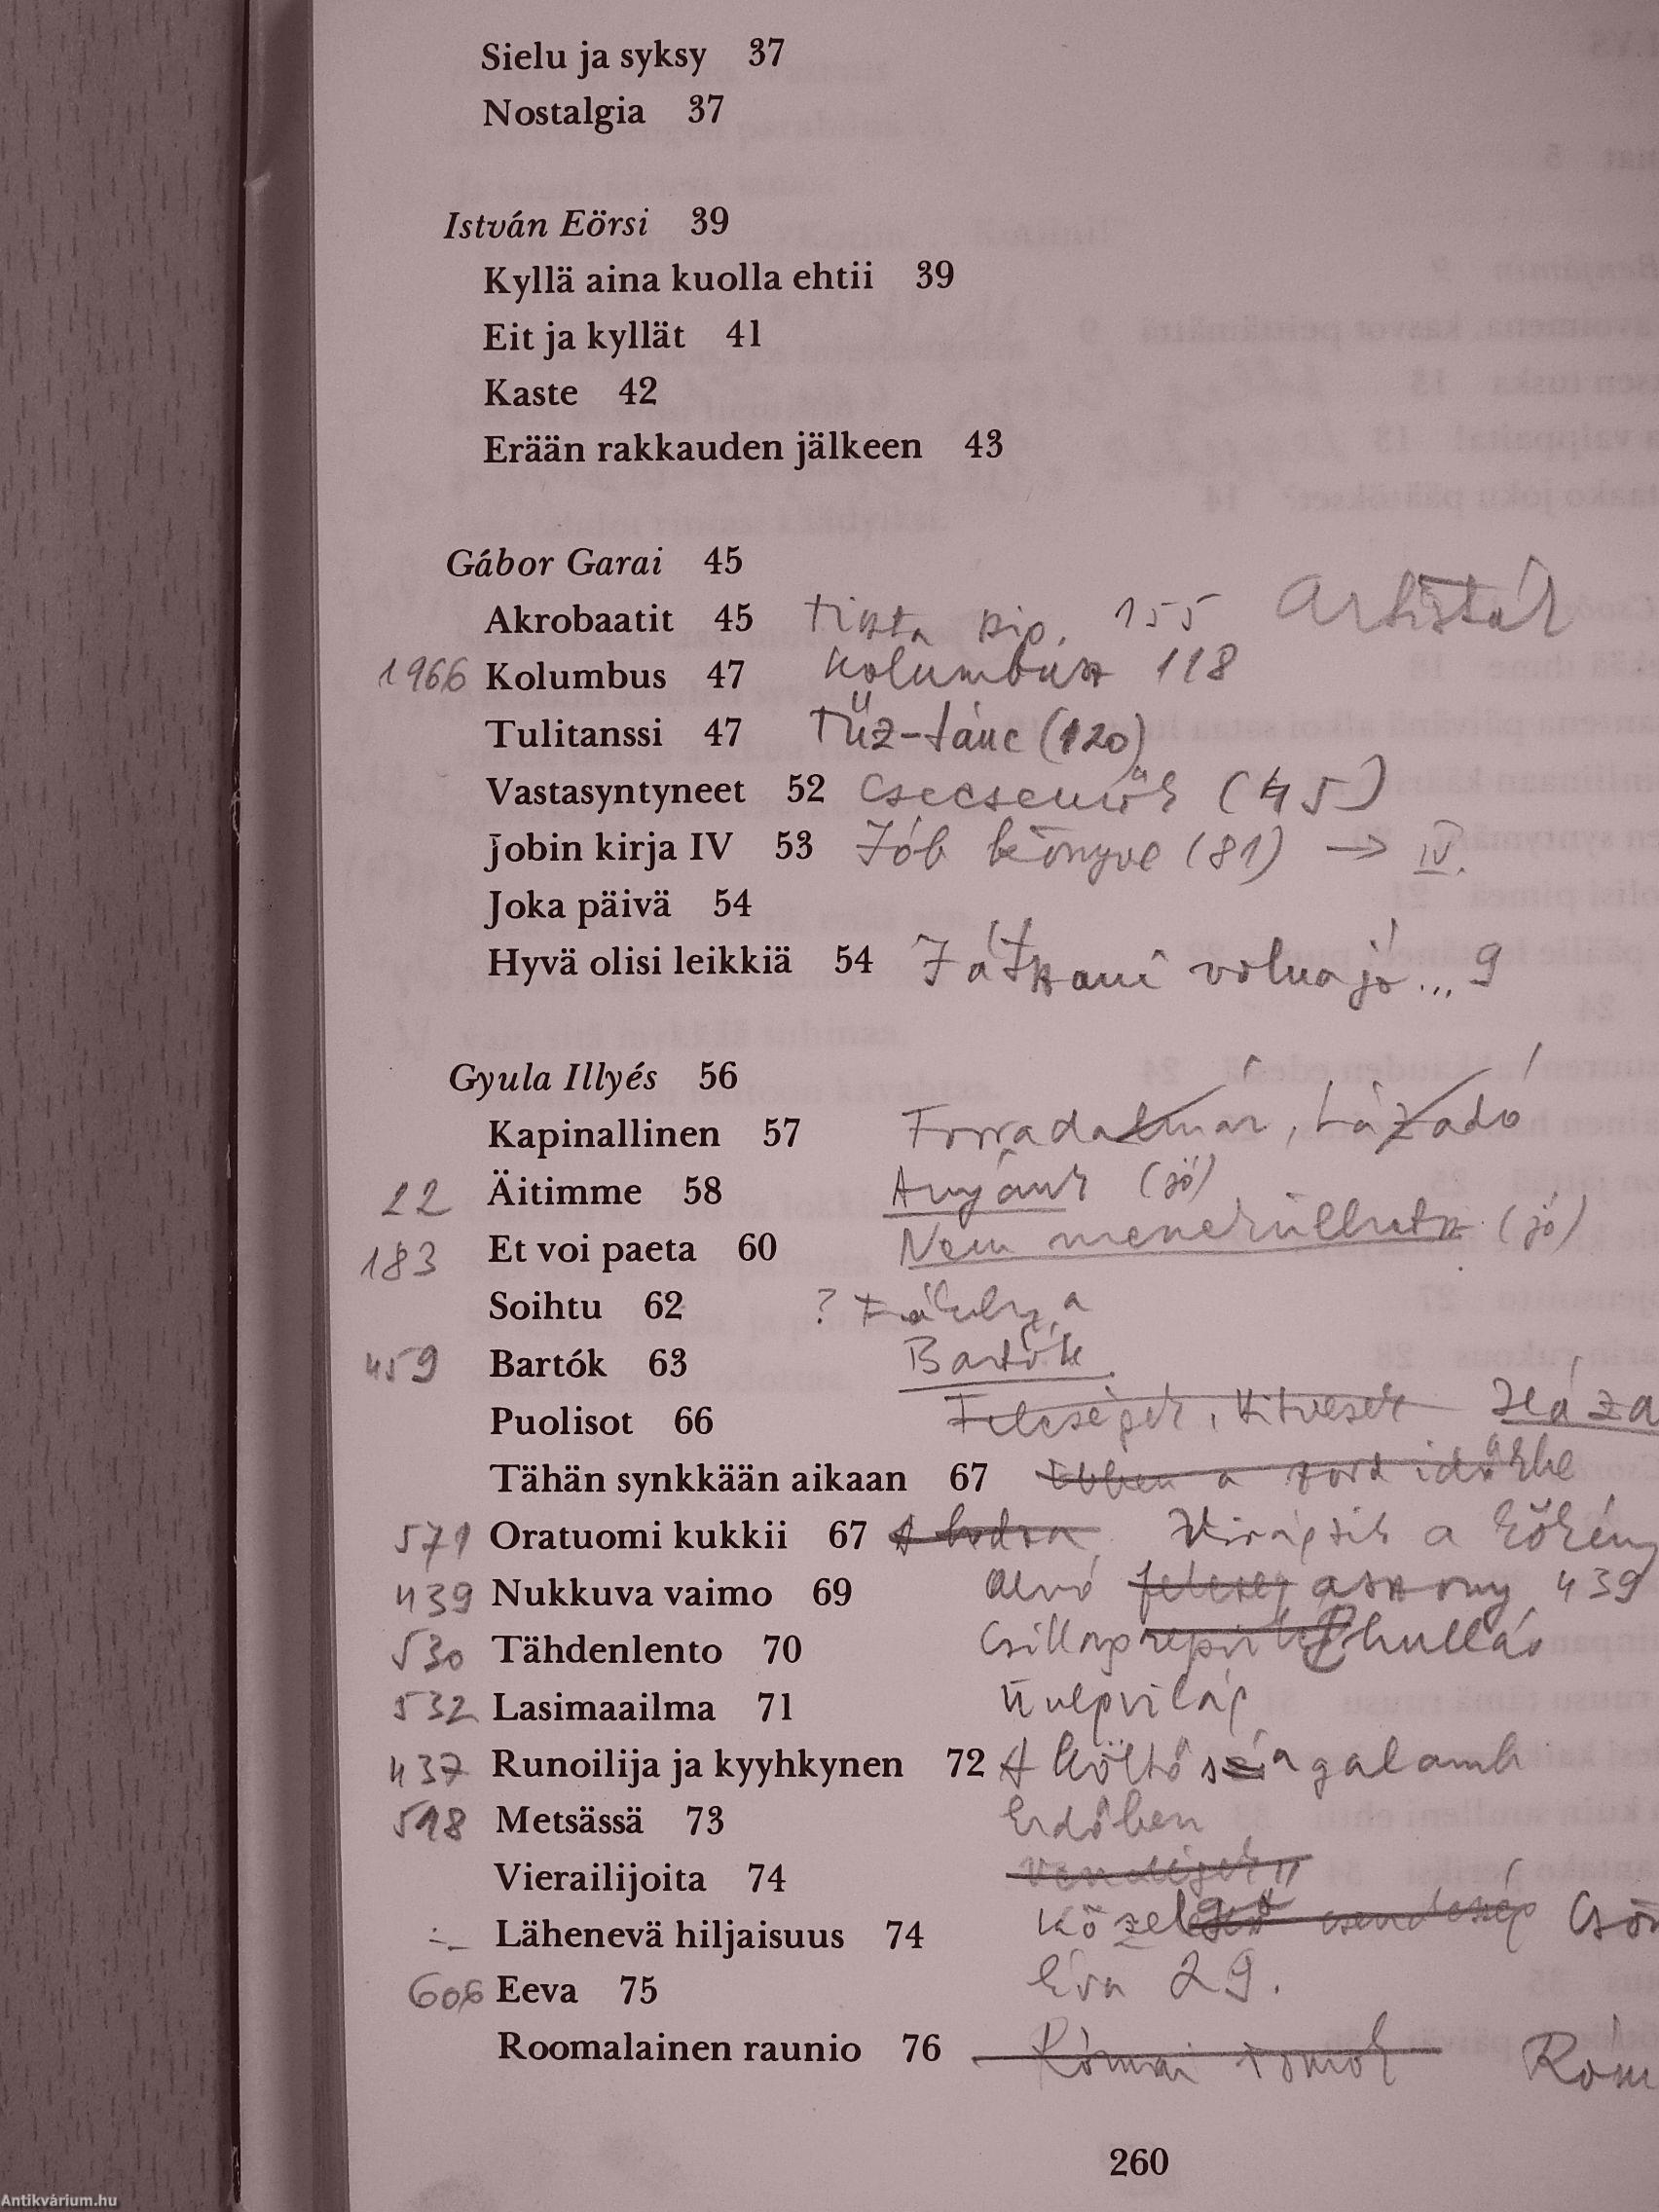 Sielu ja syksy 37
Nostalgia 37
István Eörsi 39
Kyllä aina kuolla ehtii 39
Eit ja kyllät 41
Kaste 42
Erään rakkauden jälkeen 43
Gábor Garai 45
Akrobaatit 45 155 Artisták
1966 Kolumbus 47 Kolumbusz 118
Tulitanssi 47 Tűz-tánc (120)
Vastasyntyneet 52 Csecsemők (45)
Jobin kirja IV 53 Jób könyve (81) → IV.
Joka päivä 54
Hyvä olisi leikkiä 54 Játszani volna jó... 9
Gyula Illyés 56
Kapinallinen 57 Forradalmár, Lázadó
22 Äitimme 58 Anyánk (jó)
183 Et voi paeta 60 Nem menekülhetsz (jó)
Soihtu 62 ? Fáklya
459 Bartók 63 Bartók
Puolisot 66 Feleségek, Hitvesek Háza
Tähän synkkään aikaan 67 Ebben a zord időkbe
571 Oratuomi kukkii 67 A bodza Virágzik a kökény
439 Nukkuva vaimo 69 Alvó feleség asszony 439
530 Tähdenlento 70 Csillag hullás
532 Lasimaailma 71 Üvegvilág
437 Runoilija ja kyyhkynen 72 A költő és a galamb
518 Metsässä 73 Erdőben
Vierailijoita 74 Vendégek
Lähenevä hiljaisuus 74 Közelgő csendesség Csön
606 Eeva 75 Éva 29.
Roomalainen raunio 76 Római romok Róm
260
Antikvárium.hu